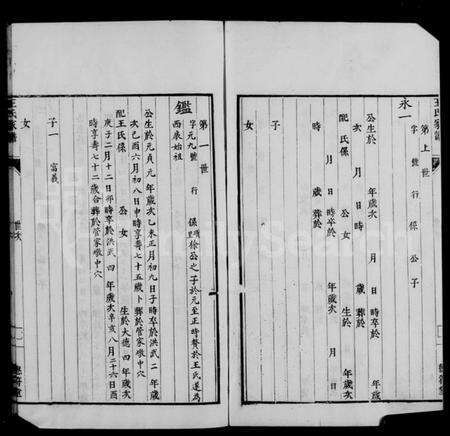 王氏家譜
第上世
永一
字 號 行 係 公 子
公生於 年歲次 月 日 時卒於 年
次 月 日 時 歲 葬於
配氏係 公女 生於 年歲次
月 日 時卒於 年歲次 月 日
時 歲 葬於
子
女
第一世
鑑
字元九號 行 係 徐公之子於元至正時贅於王氏遂為
西泰始祖
公生於元貞元年歲次乙未正月初九日子時卒於洪武二年歲
次己酉六月初八日申時享壽七十五歲卜葬於管家墩中穴
配王氏係 公女 生於大德四年歲次
庚子二月十二日卯時卒於洪武四年歲次辛亥八月二十六日酉
時享壽七十二歲合葬於管家墩中穴
子一 富義
女
世次